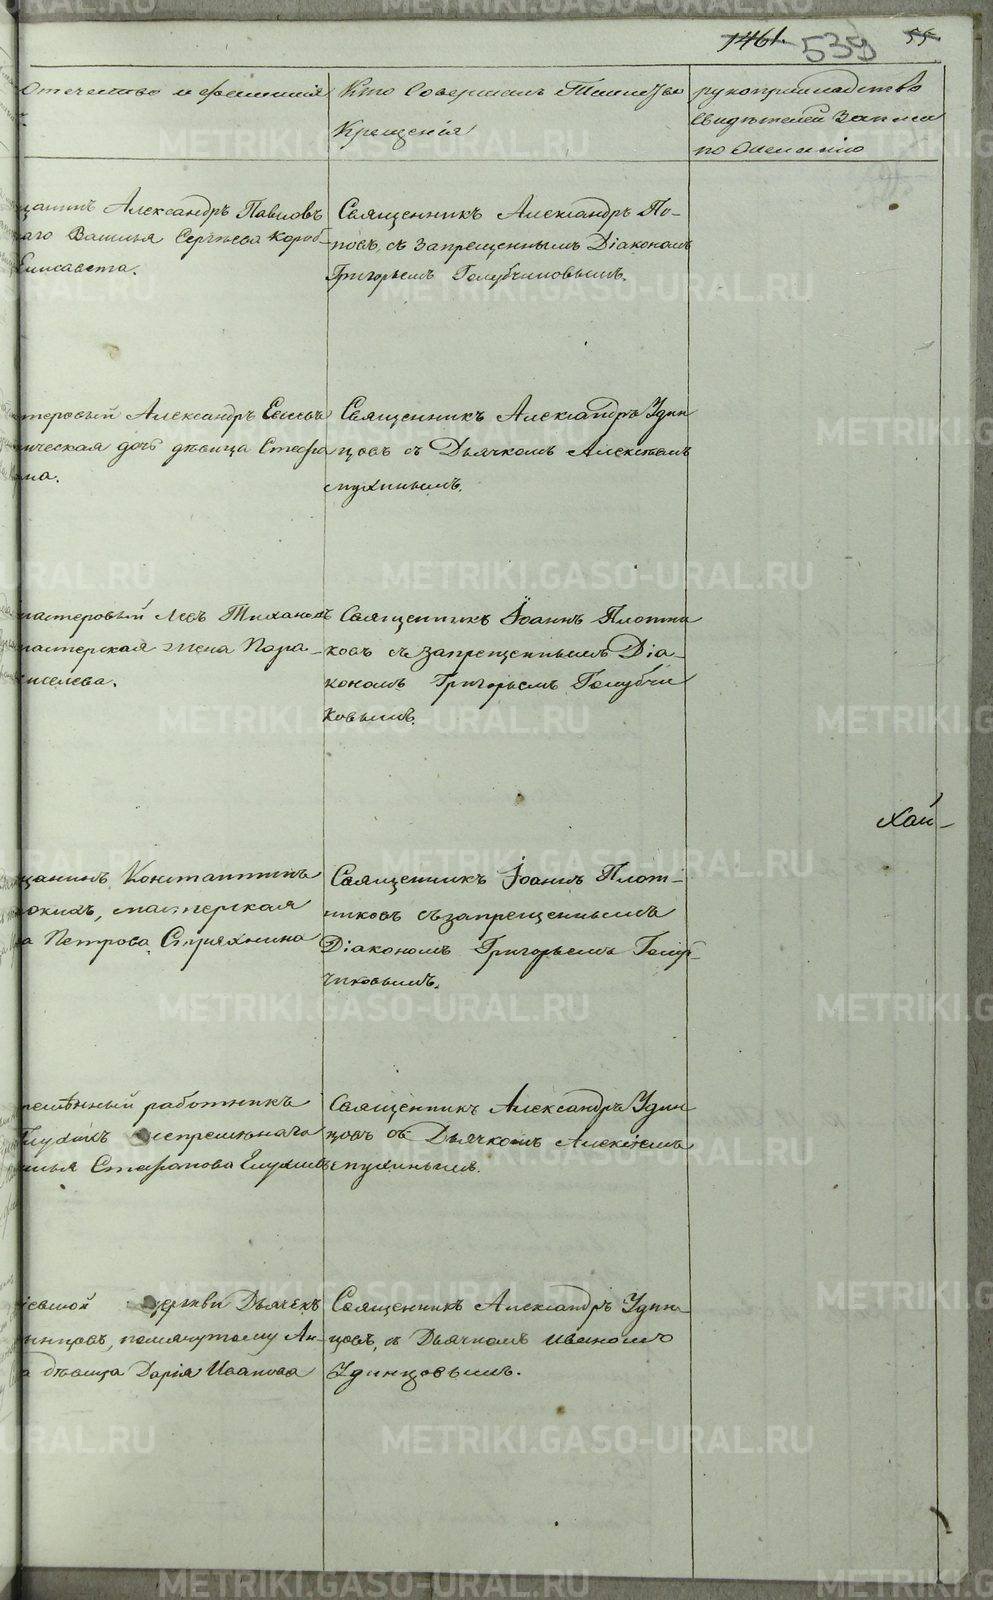 1461. 539 55
Отечество и фамилія
Кто Совершалъ Таинство
Крещенія
рукоприкладство
Свидѣтелей Записи
по желанію
щанинъ Александръ Павловъ
аго Василья Сергѣева Короб-
Елисавета.
Священникъ Александръ По-
повъ, съ Запрещеннымъ Діакономъ
Григорьемъ Голубчиковымъ.
теровый Александръ
ническая дочь дѣвица Стефа
на.
Священникъ Александръ Удин
цовъ съ Дьячкомъ Алексѣемъ
мастеровый Левъ
мастерская жена Пара-
киселева.
Священникъ Іоаннъ Плотни
ковъ съ запрещеннымъ Діа-
кономъ Григорьемъ Голубчи
ковымъ.
Хай-
щанинъ Константинъ
мастерская
а Петрова Стряхнина
Священникъ Іоаннъ Плот-
никовъ съ запрещеннымъ
Діакономъ Григорьемъ Голуб-
чиковымъ.
работникъ
непремѣннаго
Стефанова
Священникъ Александръ Удин
цовъ съ Дьячкомъ Алексѣемъ
церкви Дьячекъ
помянутому Ан-
а дѣвица Дарія Иванова
Священникъ Александръ Удин-
цовъ, съ Дьячкомъ Иваномъ
Удинцовымъ.
METRIKI.GASO-URAL.RU